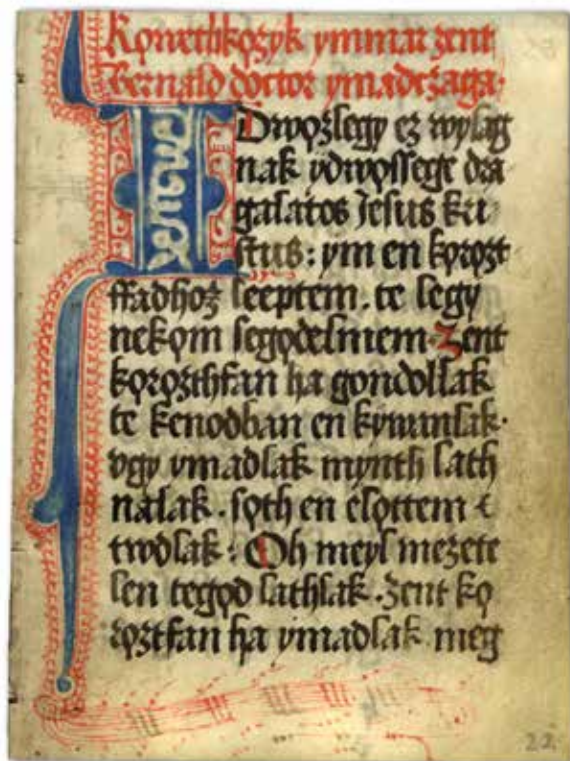 Kǫwethkǫzyk ymmar zent
Bernald doctor ymadczaga·
IDwǫzlegy ez wylag
nak ydwǫssege dra
galatos Jesus kri
stus: ym en kǫrǫzt
ffadhoz leeptem. te legy
nekǫm segǫdelmem· Zent
kǫrǫzthfan ha gondollak
te kenodban en kywanlak·
vgy ymadlak mynth lath
nalak· sǫth en elǫttem t
twdlak: Oh meyl mezete
len tegǫd lathlak· Zent kǫ
rǫztfan ha ymadlak meg
22